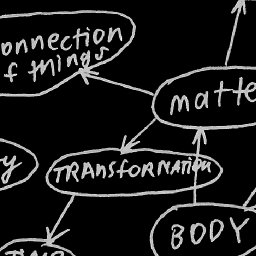 onnection
f things
matte
y
TRANSFORMATION
BODY